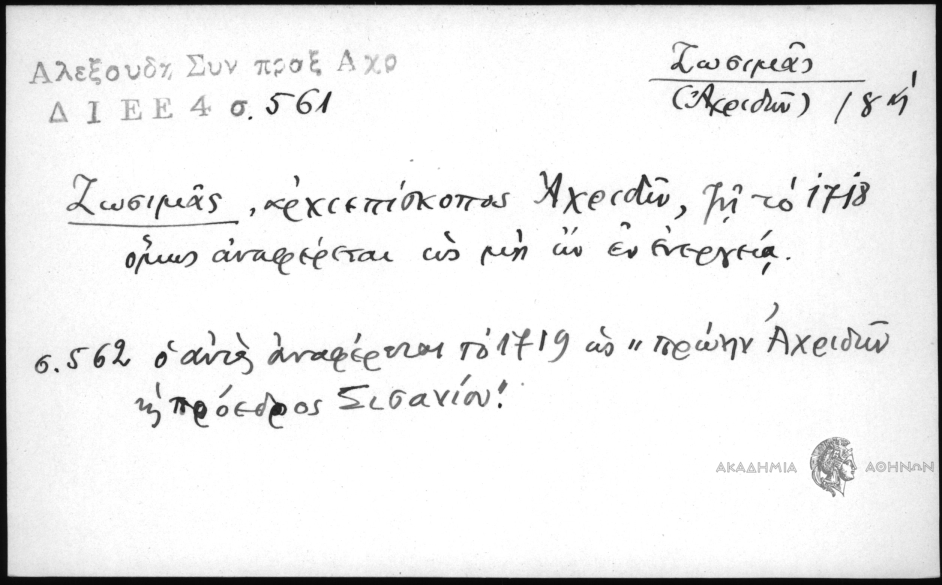 Αλεξουδη Συν πραξ Αχρ
Δ Ι Ε Ε 4 σ. 561
Ζωσιμᾶς
(Ἀχριδῶν) 18 ή
Ζωσιμᾶς, ἀρχιεπίσκοπος Ἀχριδῶν, ζῆ τὸ 1718
ὅμως ἀναφέρεται ὡς μὴ ὢν ἐν ἐνεργείᾳ.
σ. 562 ὁ αὐτὸς ἀναφέρεται τὸ 1719 ὡς "πρώην Ἀχριδῶν
κ̀ πρόεδρος Σισανίου".
ΑΚΑΔΗΜΙΑ ΑΘΗΝΩΝ